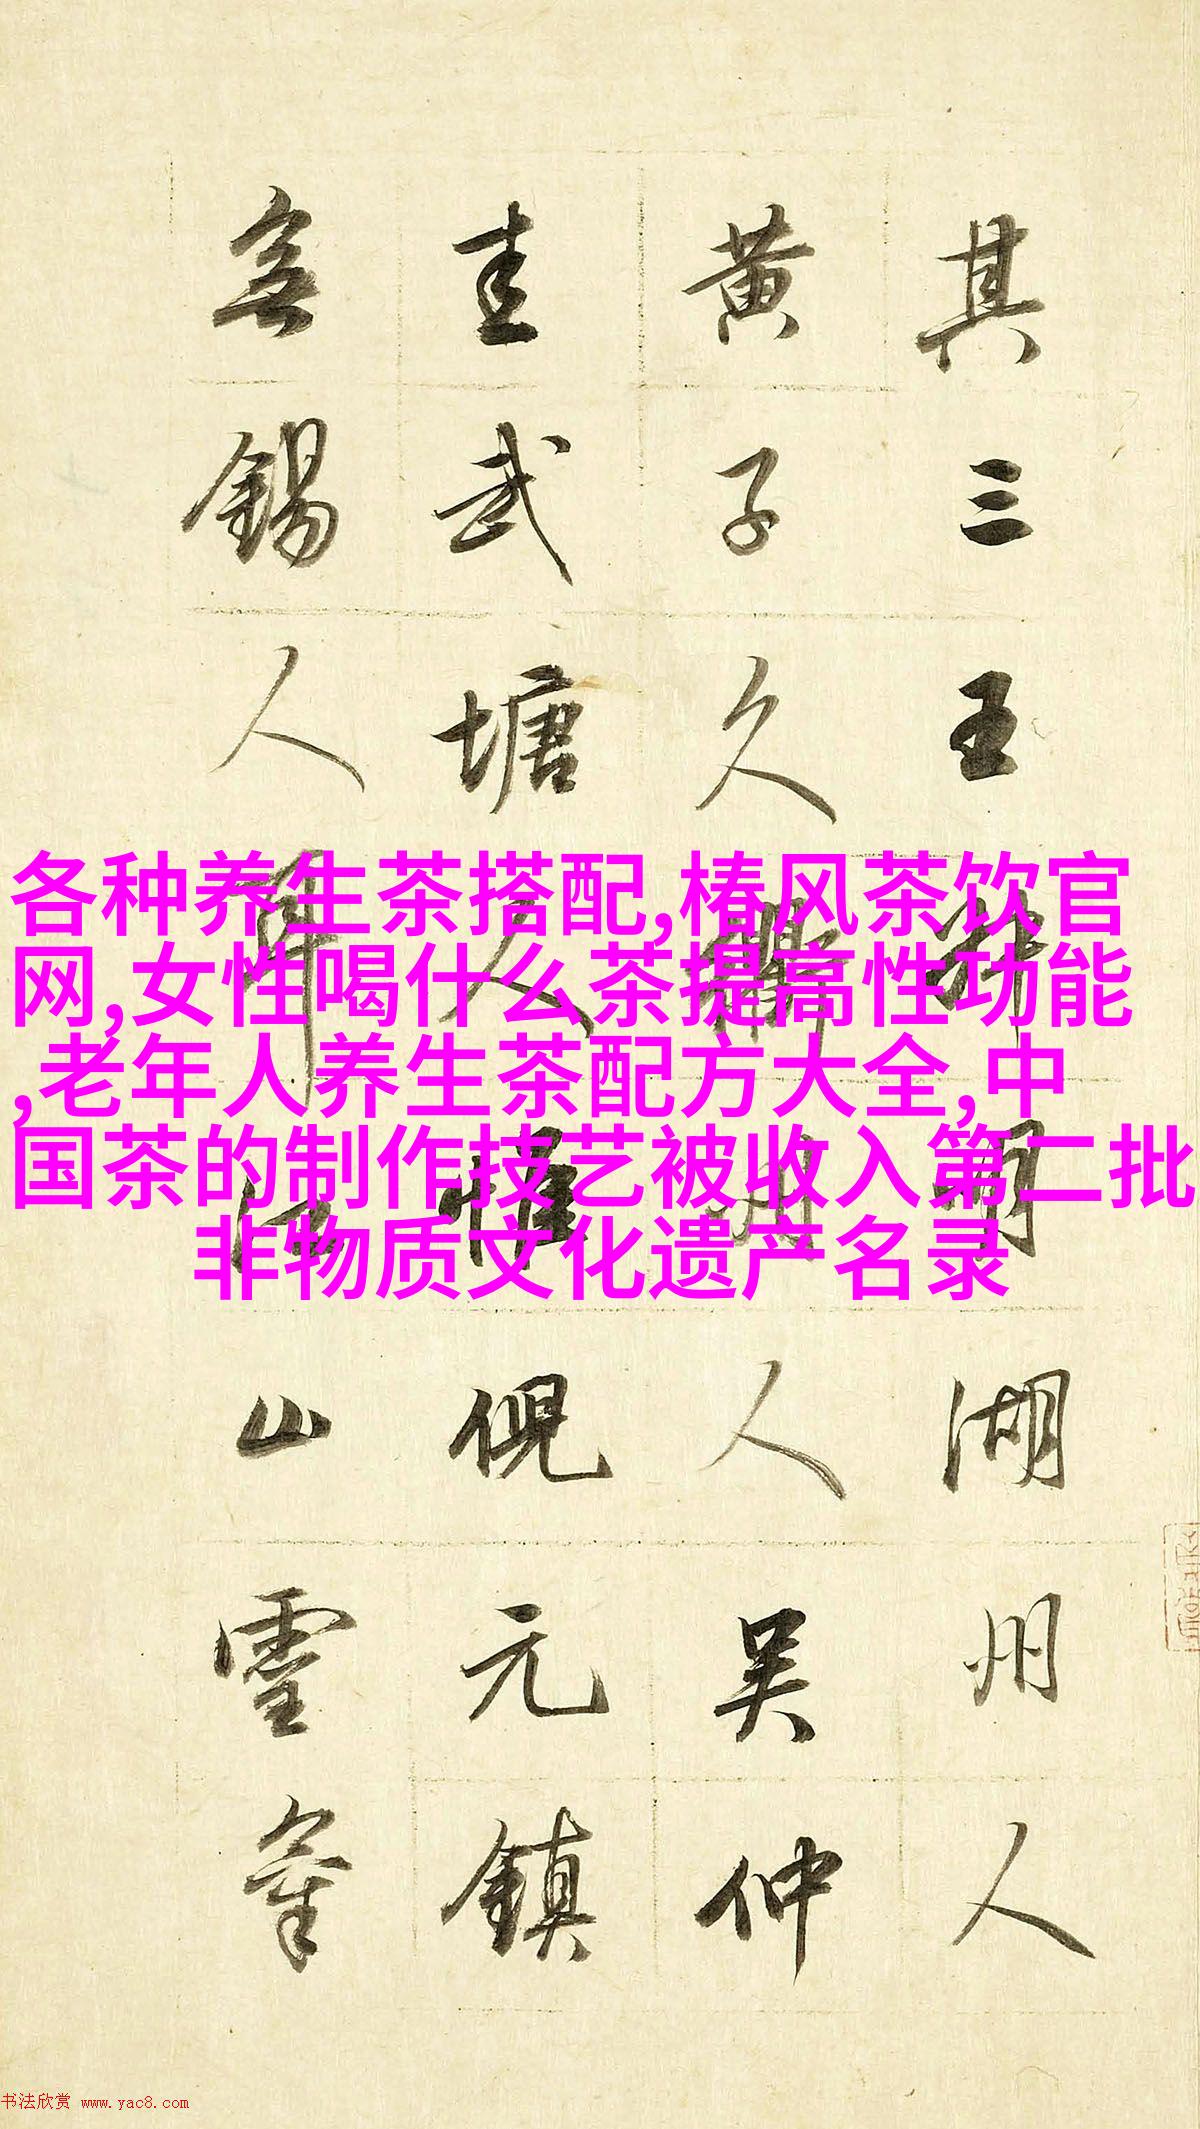 其三王叔明湖州人
黄子久衢州人吴仲
圭武塘人惟倪元鎮
無錫人耳江山靈氣
各种养生茶搭配,椿风茶饮官
网,女性喝什么茶提高性功能
,老年人养生茶配方大全,中
国茶的制作技艺被收入第二批
非物质文化遗产名录
书法欣赏 www.yac8.com